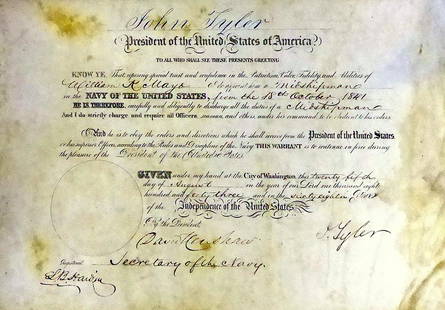 John Tyler
President of the United States of America,
TO ALL WHO SHALL SEE THESE PRESENTS GREETING
KNOW YE That reposing special trust and confidence in the Patriotism, Valor, Fidelity and Abilities of
William K. Mayo I appoint him a Midshipman
in the NAVY OF THE UNITED STATES, from the 18th October 1841
HE IS THEREFORE, carefully and diligently to discharge all the duties of a Midshipman
And I do strictly charge and require all Officers, seamen, and others under his command to be obedient to his orders
AND he is to obey the orders and directions which he shall receive from the President of the United States
or his superior Officer, according to the Rules and Discipline of the Navy. THIS WARRANT is to continue in force during
the pleasure of the President of the United States.
GIVEN under my hand at the City of Washington, this twenty fifth
day of August in the year of our Lord one thousand eight
hundred and forty three and in the sixty eighth year
of the Independence of the United States.
By the President,
J. Tyler
David Henshaw
Secretary of the Navy.
Registered